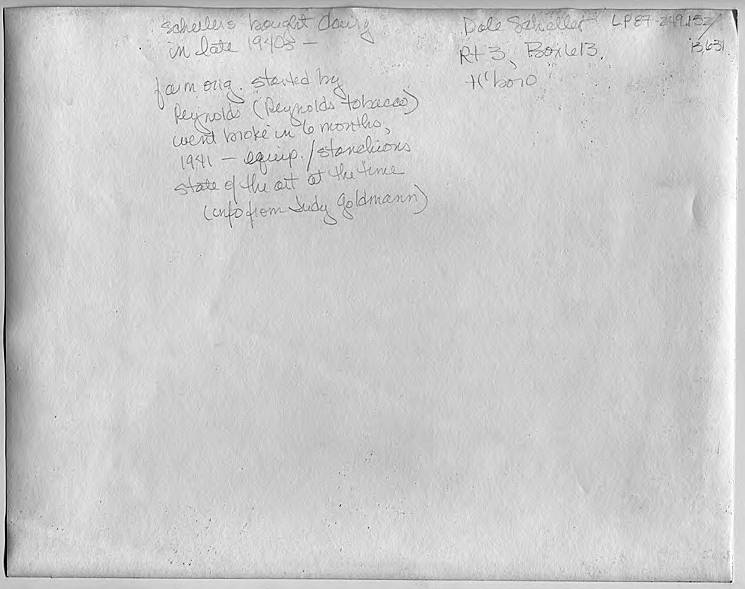 Schellers bought dairy
in late 1940s —
farm orig. started by
Reynolds (Reynolds tobacco)
went broke in 6 months,
1941 — equip./stanchions
state of the art at the time
(info from Judy Goldmann)
Dale Scheller
Rt 3, Box 613.
H'boro
LP87-249.152/
13,631